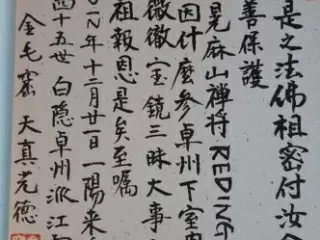 是之法佛祖密付汝
善保護
晃麻山禅将REDING
因什麼参卓州下室内
微徹宝鏡三昧大事
祖報恩是矣至嘱
八年十二月廿一日一陽来
四十五世 白隐卓州派江
金毛窟 天真光德